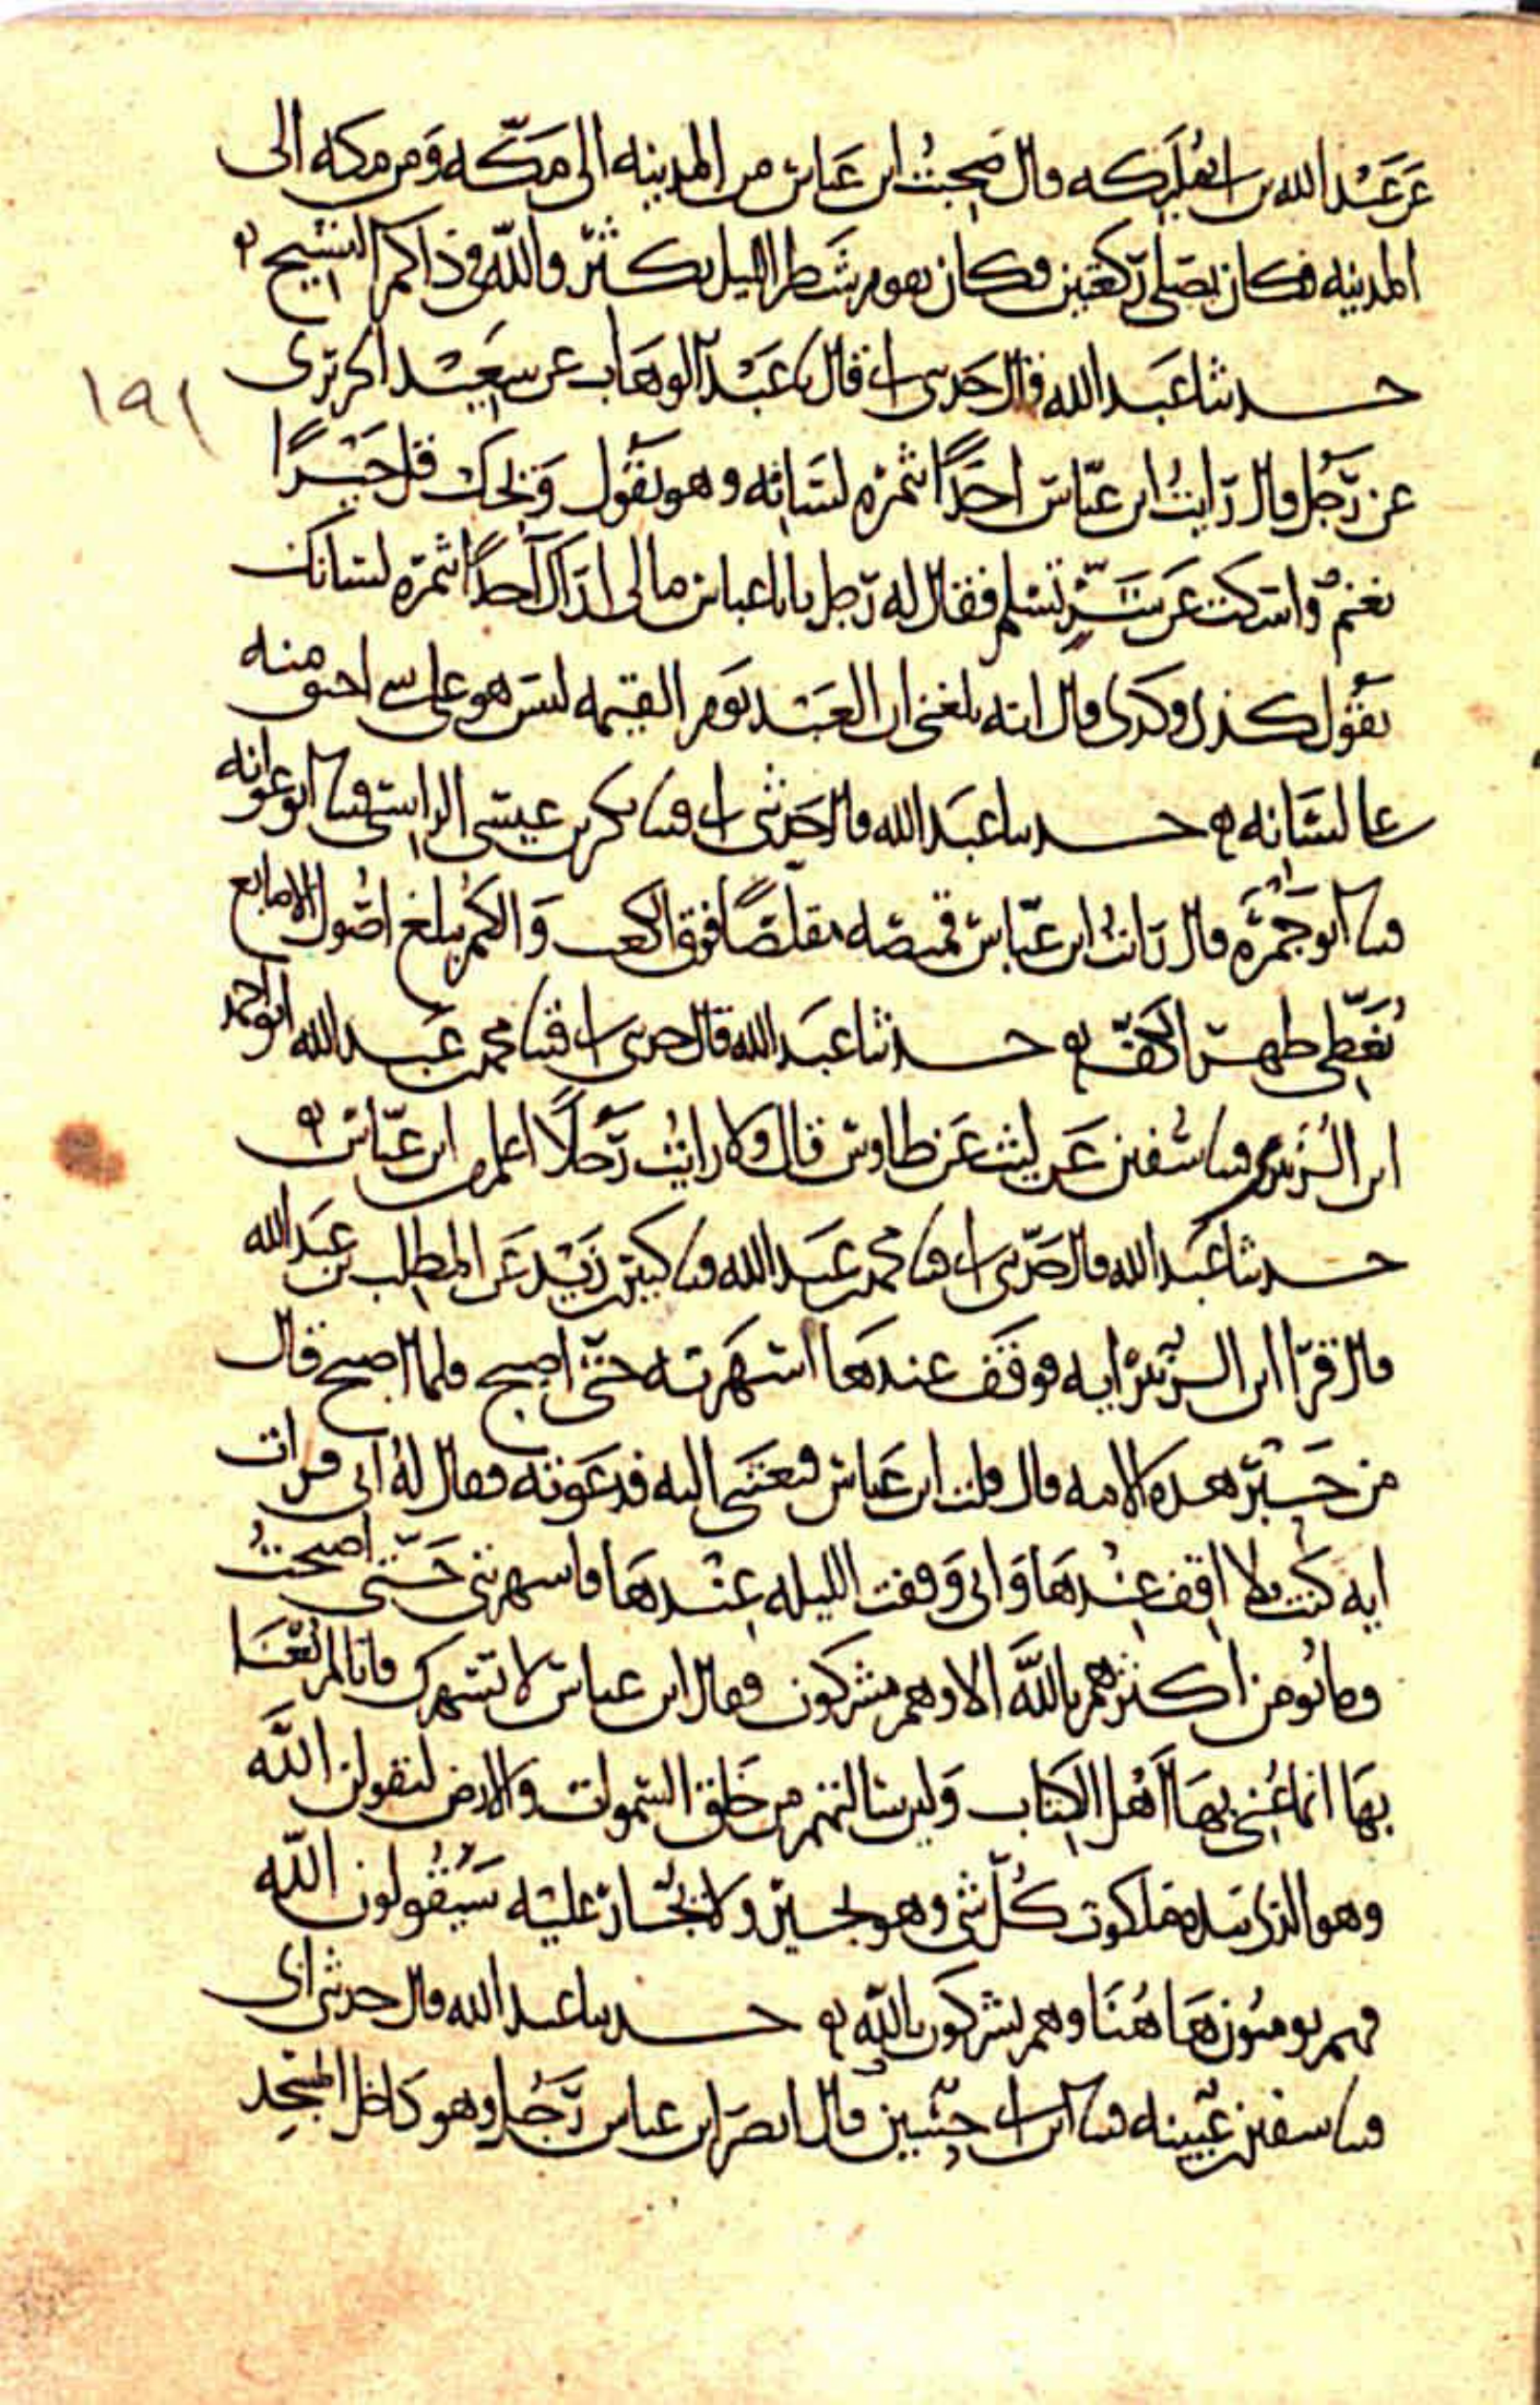 عن عبد الله بن ابى مليكه قال صحبت ابن عباس من المدينه الى مكّه ومن مكه الى
المدينه فكان يصلى ركعتين وكان يقوم شطر الليل يكثر والله فى ذاكم التسبيح ه
حدثنا عبد الله قال حدثنى ابى قال نا عبد الوهاب عن سعيد الجريرى
١٩١
عن رجل قال رايت ابن عباس اخذًا ثمره لسانه وهو يقول ويحك قل خيرًا
تغنم واسكت عن شر تسلم فقال له رجل يا با عباس ما لى اراك آخذًا ثمرة لسانك
تقول كذى وكذى قال انه بلغنى ان العبد يوم القيمه ليس هو على شى احنق منه
على لسانه ه حدثنا عبد الله قال حدثنى ابى قثنا بكر بن عيسى الراسبى قثنا ابو عوانه
قثنا ابو جمره قال رايت ابن عباس قميصه مقلصًا فوق الكعب والكم يبلغ اصول الاصابع
يغطى ظهر الكف ه حدثنا عبد الله قال حدثنى ابى قثنا محمد بن عبد الله ابو احمد
ابن الزبيرى قثنا سفين عن ليث عن طاوس قال ولا رايت رجلًا اعلم من ابن عباس ه
حدثنا عبد الله قال حدثنى ابى قثنا محمد بن عبد الله قثنا كثير بن زيد عن المطلب بن عبد الله
قال قرا ابن الزبير ايه فوقف عندها اسهرته حتى اصبح فلما اصبح قال
من حبر هذه الامه قال قلت ابن عباس فبعثنى اليه فدعوته فقال له انى قرات
ايه كنت لا اقف عندها وانى وقفت الليله عندها فاسهرتنى حتى اصبحت
وما يومن اكثرهم بالله الا وهم مشركون فقال ابن عباس لا تسهرك فانا لم نعنا
بها انما عنى بها اهل الكتاب ولين سالتهم من خلق السموات والارض ليقولن الله
وهو الذى بيده ملكوت كل شى وهو يجير ولا يجار عليه سيقولون الله
فهم يومنون هاهنا وهم يشركون بالله ه حدثنا عبد الله قال حدثنى ابى
قثنا سفين بن عيينه قثنا ابن ابى حسين قال ابصر ابن عباس رجل وهو داخل المسجد